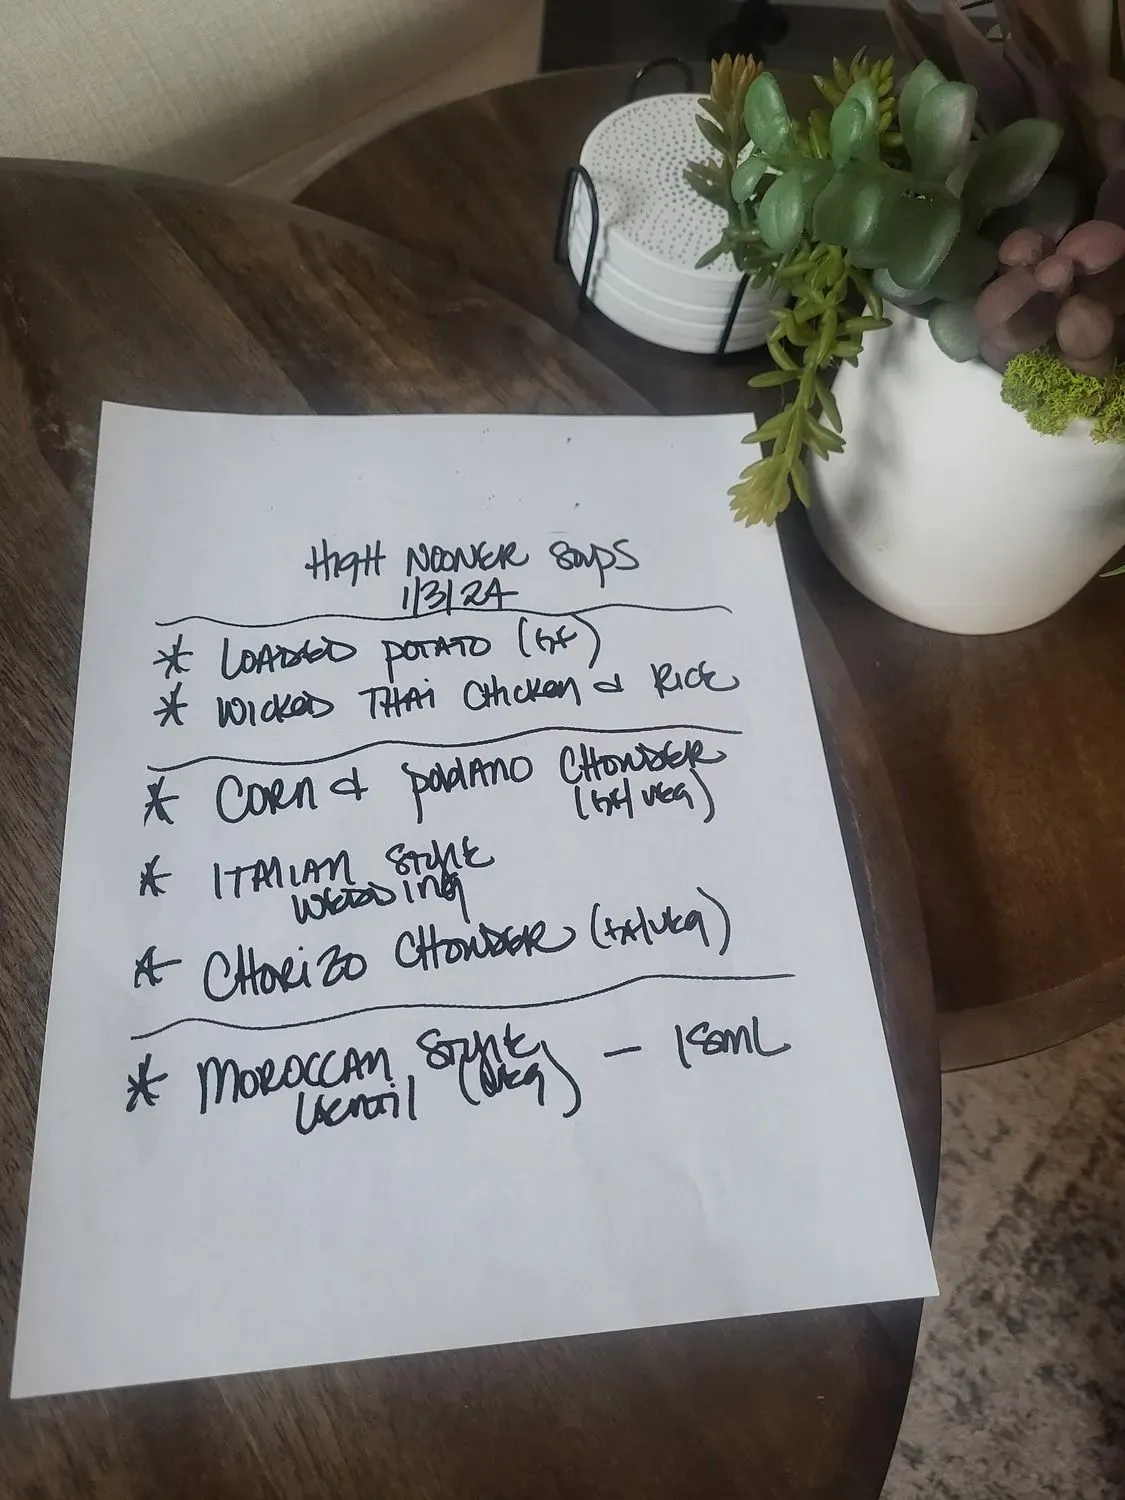 HIGH NOONER SOUPS
1/3/24
* LOADED POTATO (GF)
* WICKED THAI CHICKEN & RICE
* CORN & POBLANO CHOWDER
(GF/VEG)
* ITALIAN STYLE
WEDDING
* CHORIZO CHOWDER (GF/VEG)
* MOROCCAN STYLE – ISML
LENTIL (VEG)